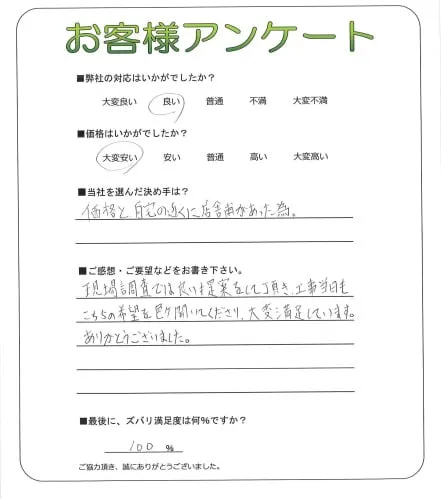 お客様アンケート
■弊社の対応はいかがでしたか？
大変良い 良い 普通 不満 大変不満
■価格はいかがでしたか？
大変安い 安い 普通 高い 大変高い
■当社を選んだ決め手は？
価格と自宅の近くに店舗があった為。
■ご感想・ご要望などをお書き下さい。
現場調査では良い提案をして頂き、工事当日も
こちらの希望を色々聞いてくださり、大変満足しています。
ありがとうございました。
■最後に、ズバリ満足度は何％ですか？
100 %
ご協力頂き、誠にありがとうございました。